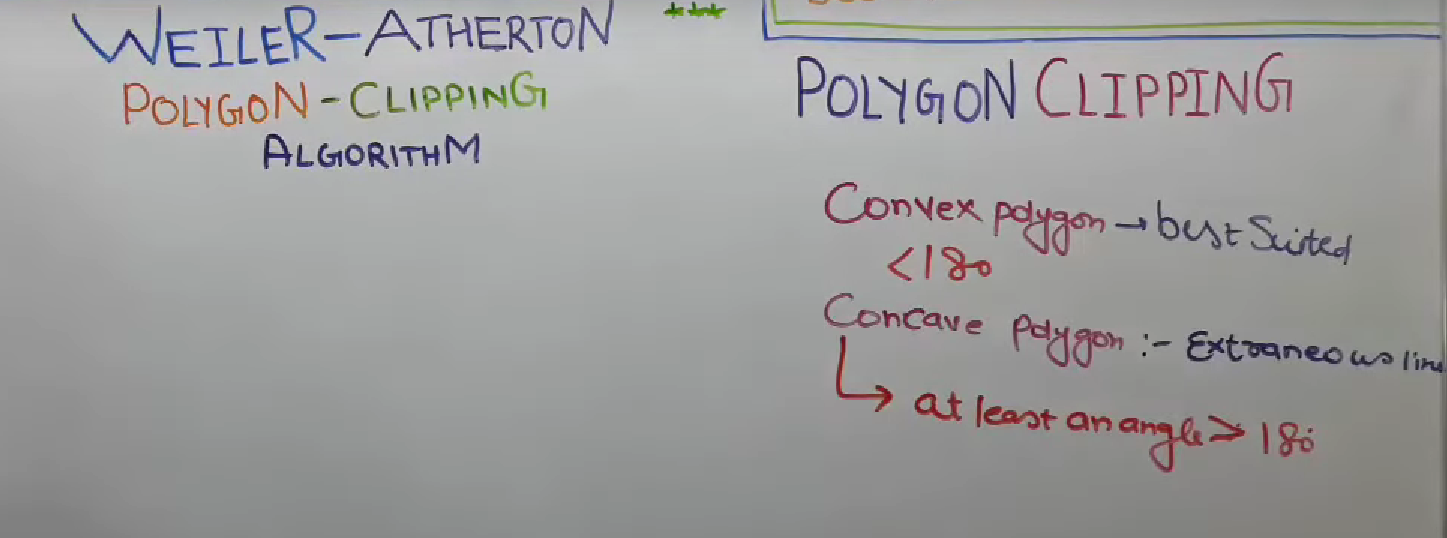 WEILER-ATHERTON ***
POLYGON-CLIPPING
ALGORITHM
POLYGON CLIPPING
Convex polygon → best Suited
<180
Concave polygon :- Extraneous line
↳ at least an angle > 180